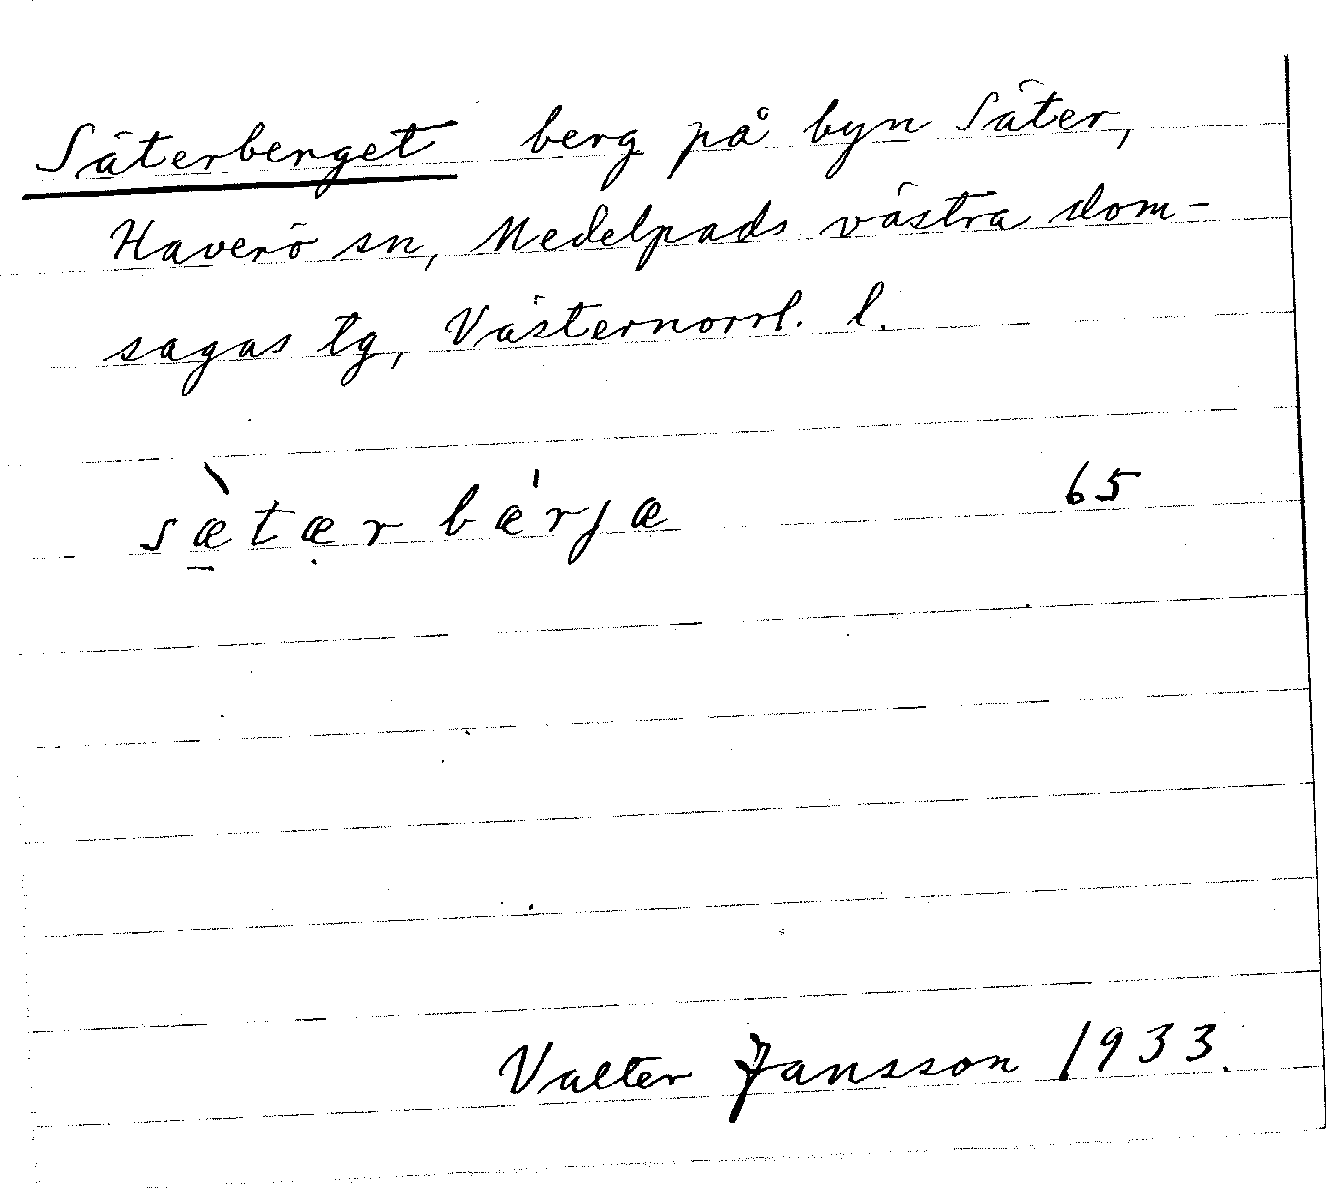 Säterberget berg på byn Säter,
Haverö sn, Medelpads västra dom-
sagas tg, Västernorrl. l.
sæ̠̀tæ̣rbǽrjæ 65
Valter Jansson 1933.